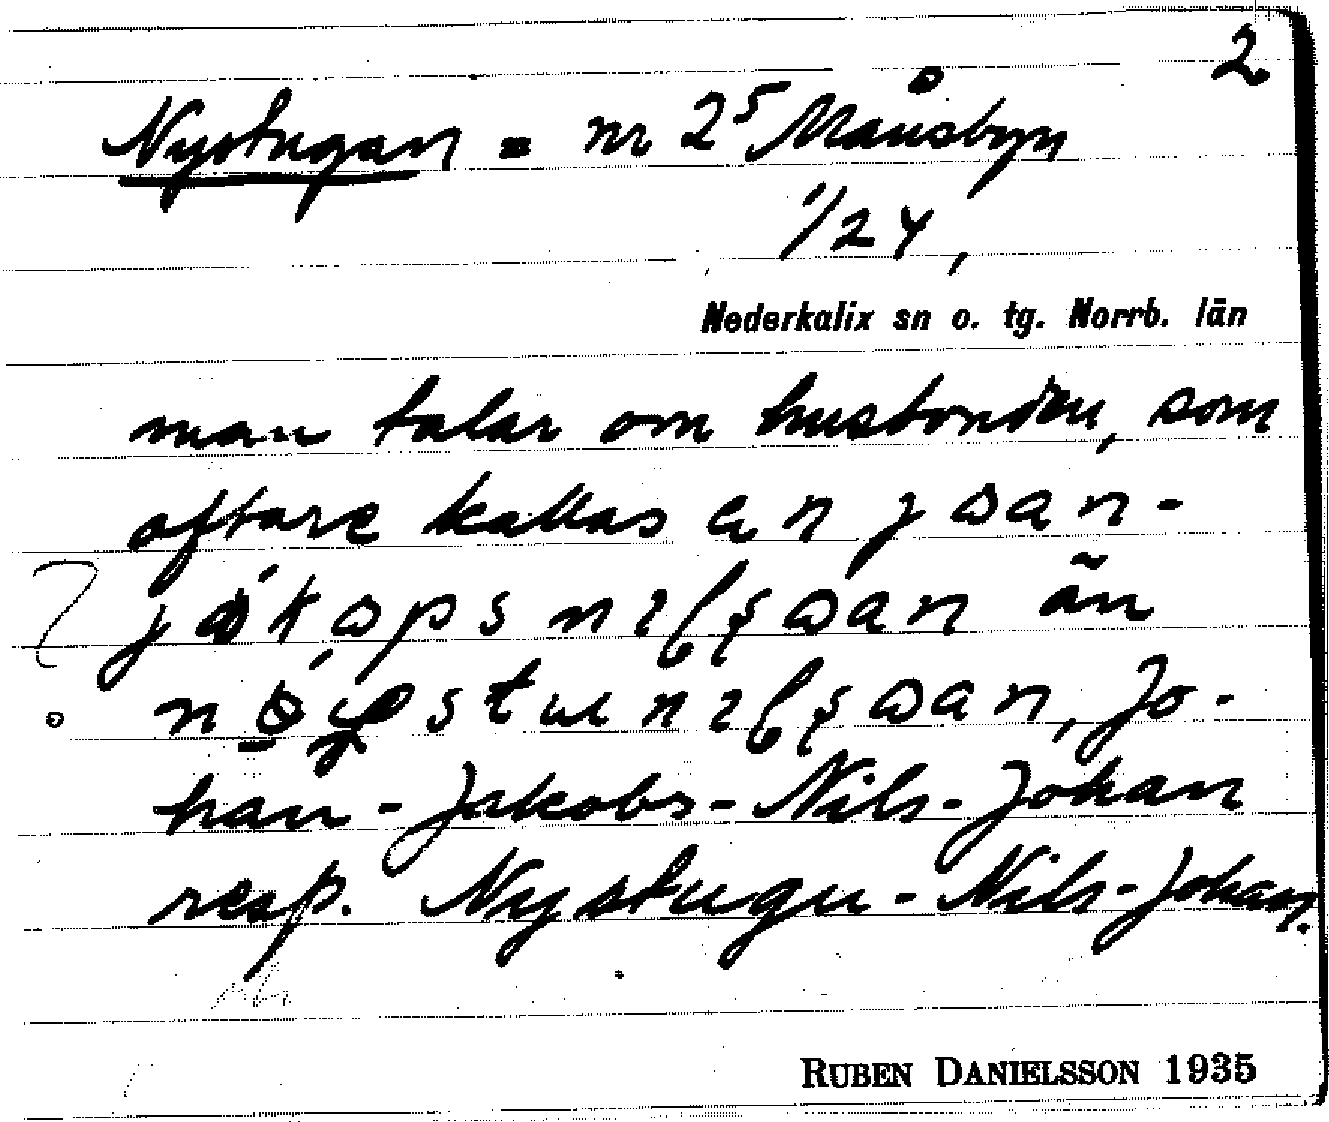 2
Nystugan = nr 2⁵ Månsbyn
1/24,
Nederkalix sn o. tg. Norrb. län
man talar om husbonden, som
oftare kallas
än
Jo-
han - Jakobs - Nils - Johan
resp. Nystugu - Nils - Johan.
RUBEN DANIELSSON 1935